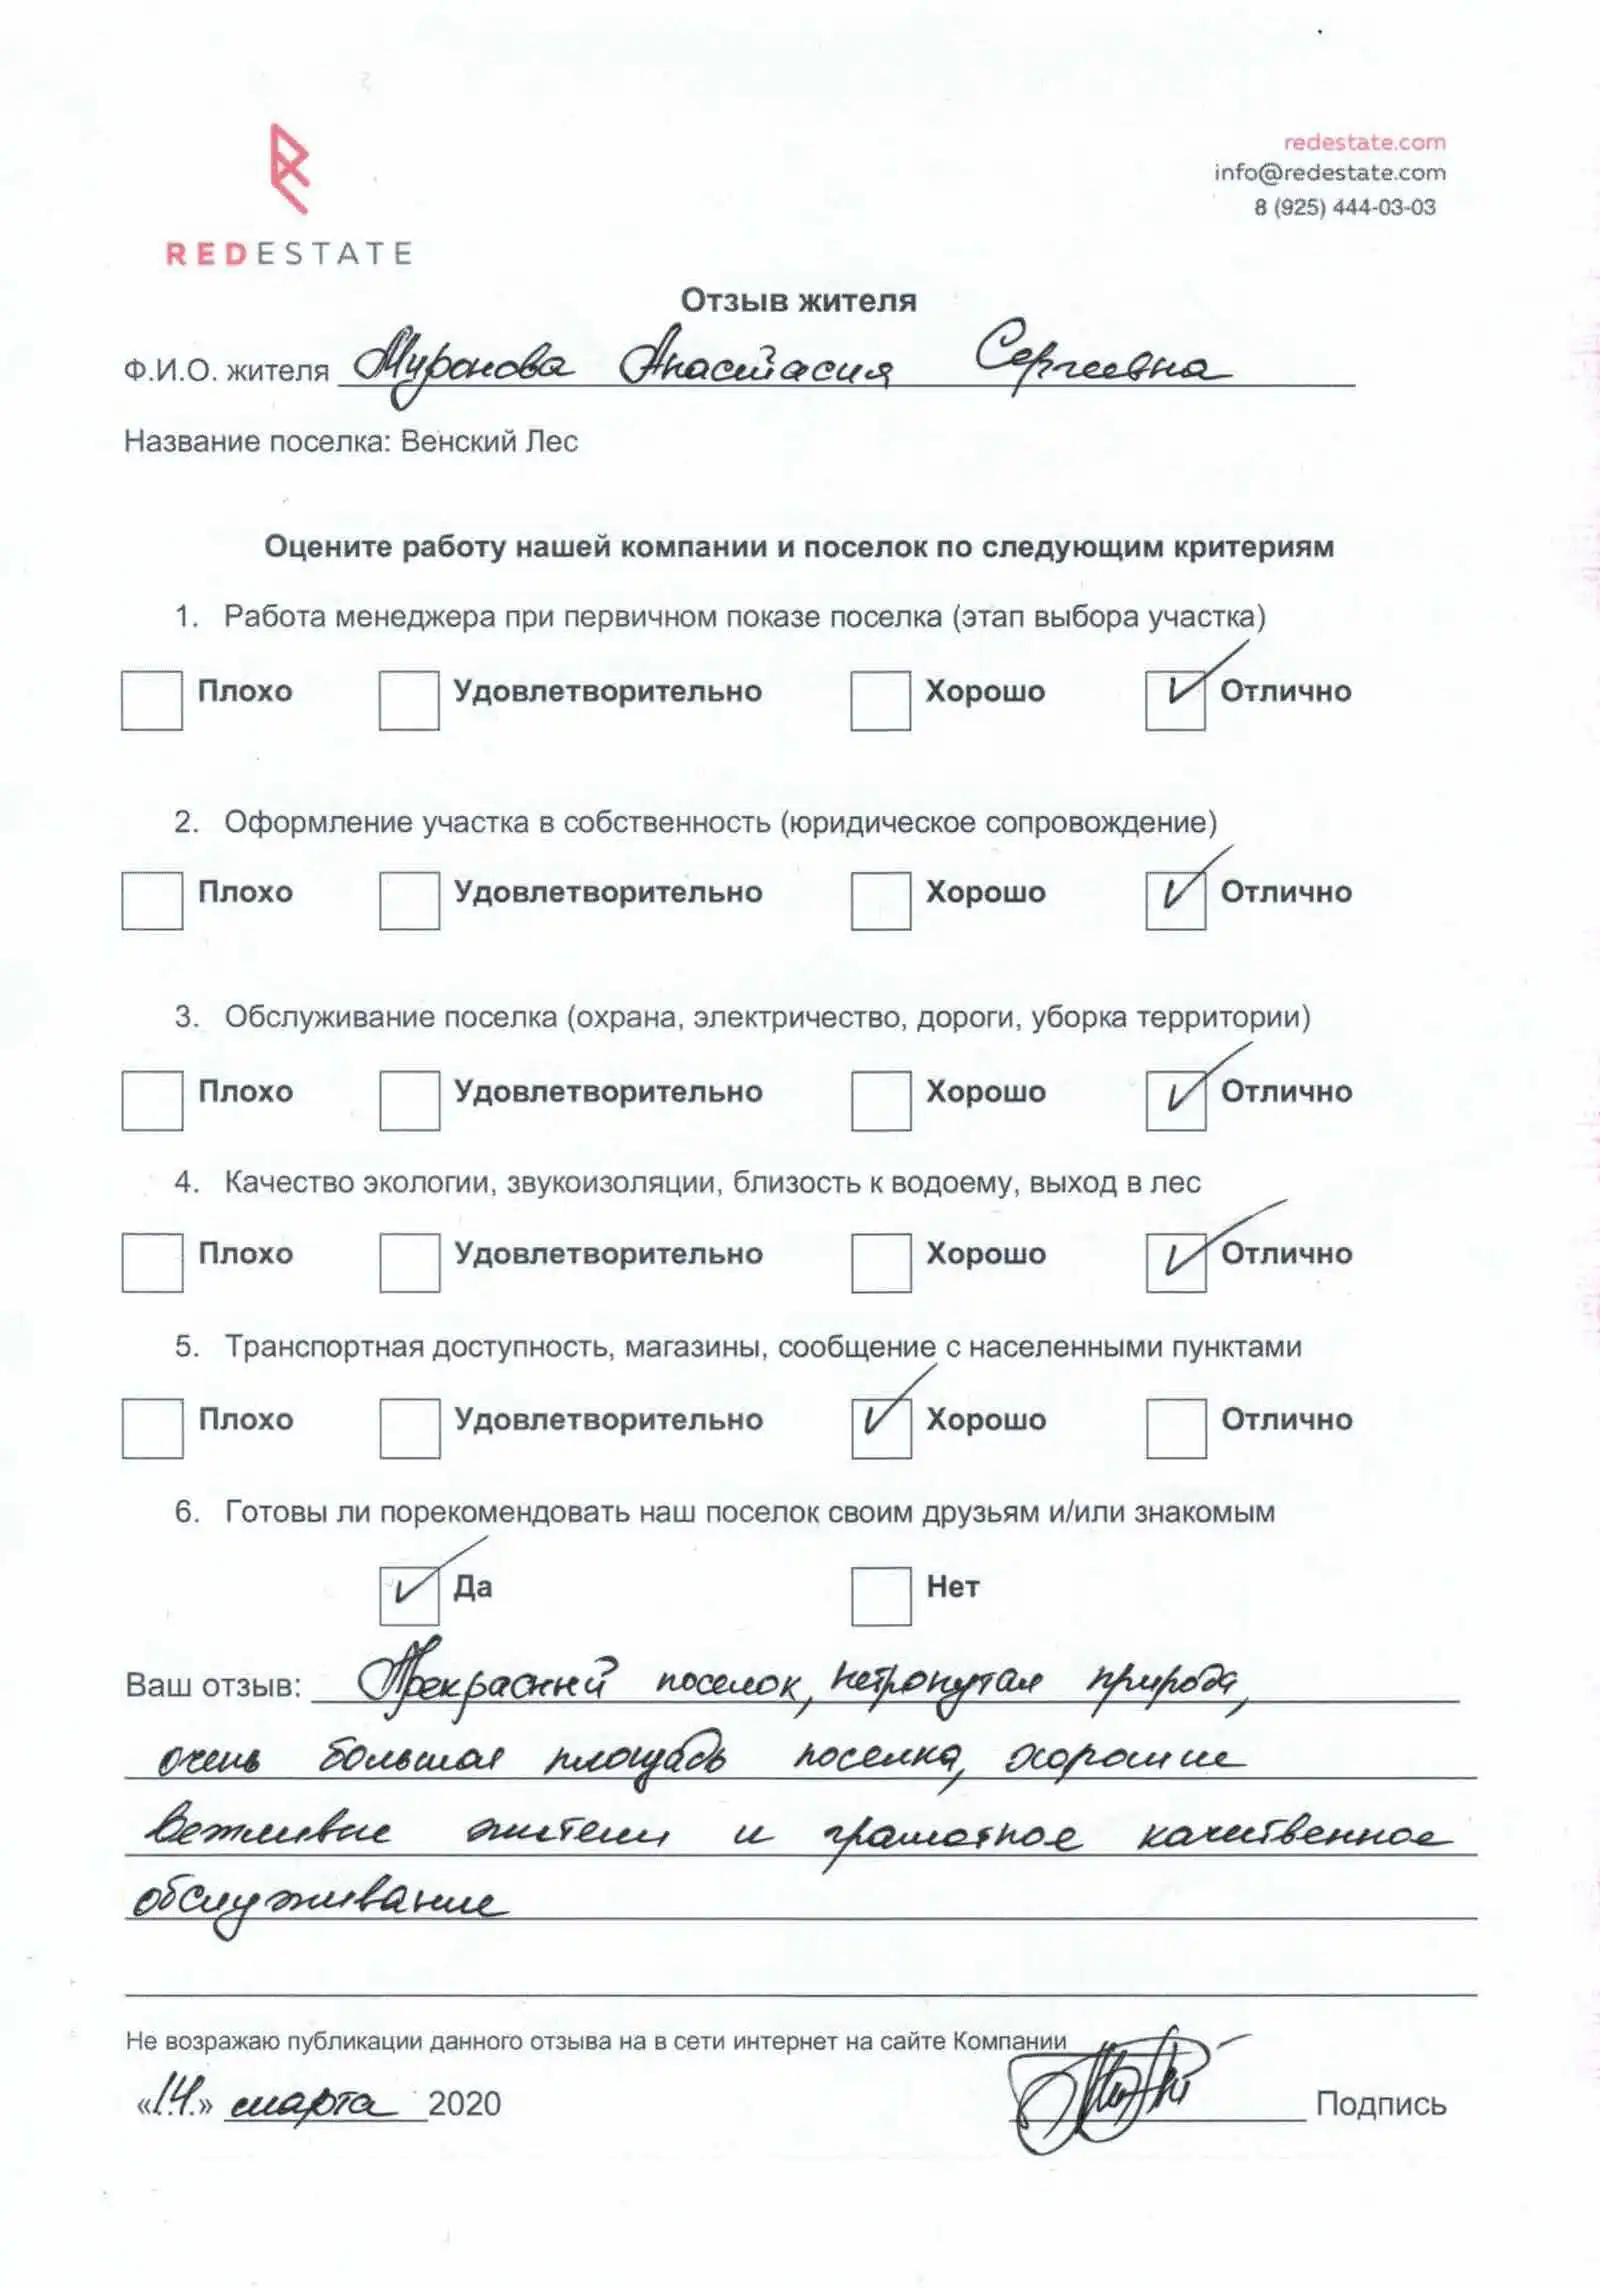 REDESTATE
redestate.com
info@redestate.com
8 (925) 444-03-03
Отзыв жителя
Ф.И.О. жителя Муронова Анастасия Сергеевна
Название поселка: Венский Лес
Оцените работу нашей компании и поселок по следующим критериям
1. Работа менеджера при первичном показе поселка (этап выбора участка)
Плохо Удовлетворительно Хорошо Отлично
2. Оформление участка в собственность (юридическое сопровождение)
Плохо Удовлетворительно Хорошо Отлично
3. Обслуживание поселка (охрана, электричество, дороги, уборка территории)
Плохо Удовлетворительно Хорошо Отлично
4. Качество экологии, звукоизоляции, близость к водоему, выход в лес
Плохо Удовлетворительно Хорошо Отлично
5. Транспортная доступность, магазины, сообщение с населенными пунктами
Плохо Удовлетворительно Хорошо Отлично
6. Готовы ли порекомендовать наш поселок своим друзьям и/или знакомым
Да Нет
Ваш отзыв: Прекрасный поселок, нетронутая природа,
очень большая площадь поселка, хорошие
вежливые жители и грамотное качественное
обслуживание
Не возражаю публикации данного отзыва на в сети интернет на сайте Компании
«14.» марта 2020 Подпись